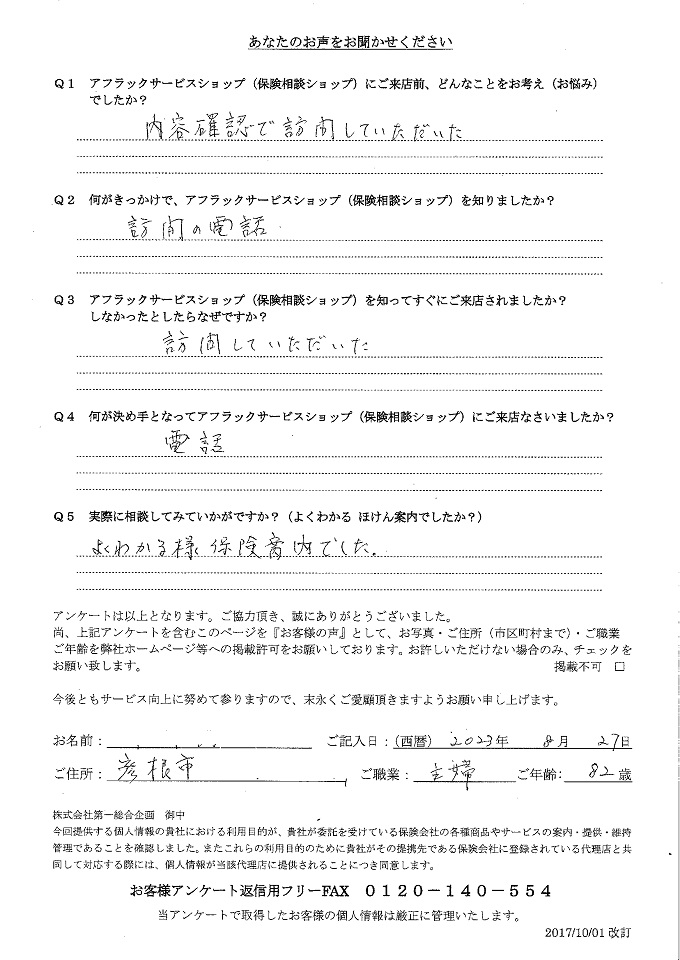 あなたのお声をお聞かせください
Q1 アフラックサービスショップ（保険相談ショップ）にご来店前、どんなことをお考え（お悩み）
でしたか？
内容確認で訪問していただいた
Q2 何がきっかけで、アフラックサービスショップ（保険相談ショップ）を知りましたか？
訪問の電話
Q3 アフラックサービスショップ（保険相談ショップ）を知ってすぐにご来店されましたか？
しなかったとしたらなぜですか？
訪問していただいた
Q4 何が決め手となってアフラックサービスショップ（保険相談ショップ）にご来店なさいましたか？
電話
Q5 実際に相談してみていかがですか？（よくわかる ほけん案内でしたか？）
よくわかる様保険案内でした.
アンケートは以上となります。ご協力頂き、誠にありがとうございました。
尚、上記アンケートを含むこのページを『お客様の声』として、お写真・ご住所（市区町村まで）・ご職業
ご年齢を弊社ホームページ等への掲載許可をお願いしております。お許しいただけない場合のみ、チェックを
お願い致します。 掲載不可 □
今後ともサービス向上に努めて参りますので、末永くご愛顧頂きますようお願い申し上げます。
お名前： ご記入日：（西暦） 2023年 8月 27日
ご住所： 彦根市 ご職業： 主婦 ご年齢： 82歳
株式会社第一総合企画 御中
今回提供する個人情報の貴社における利用目的が、貴社が委託を受けている保険会社の各種商品やサービスの案内・提供・維持
管理であることを確認しました。またこれらの利用目的のために貴社がその提携先である保険会社に登録されている代理店と共
同して対応する際には、個人情報が当該代理店に提供されることにつき同意します。
お客様アンケート返信用フリーFAX 0120－140－554
当アンケートで取得したお客様の個人情報は厳正に管理いたします。
2017/10/01 改訂